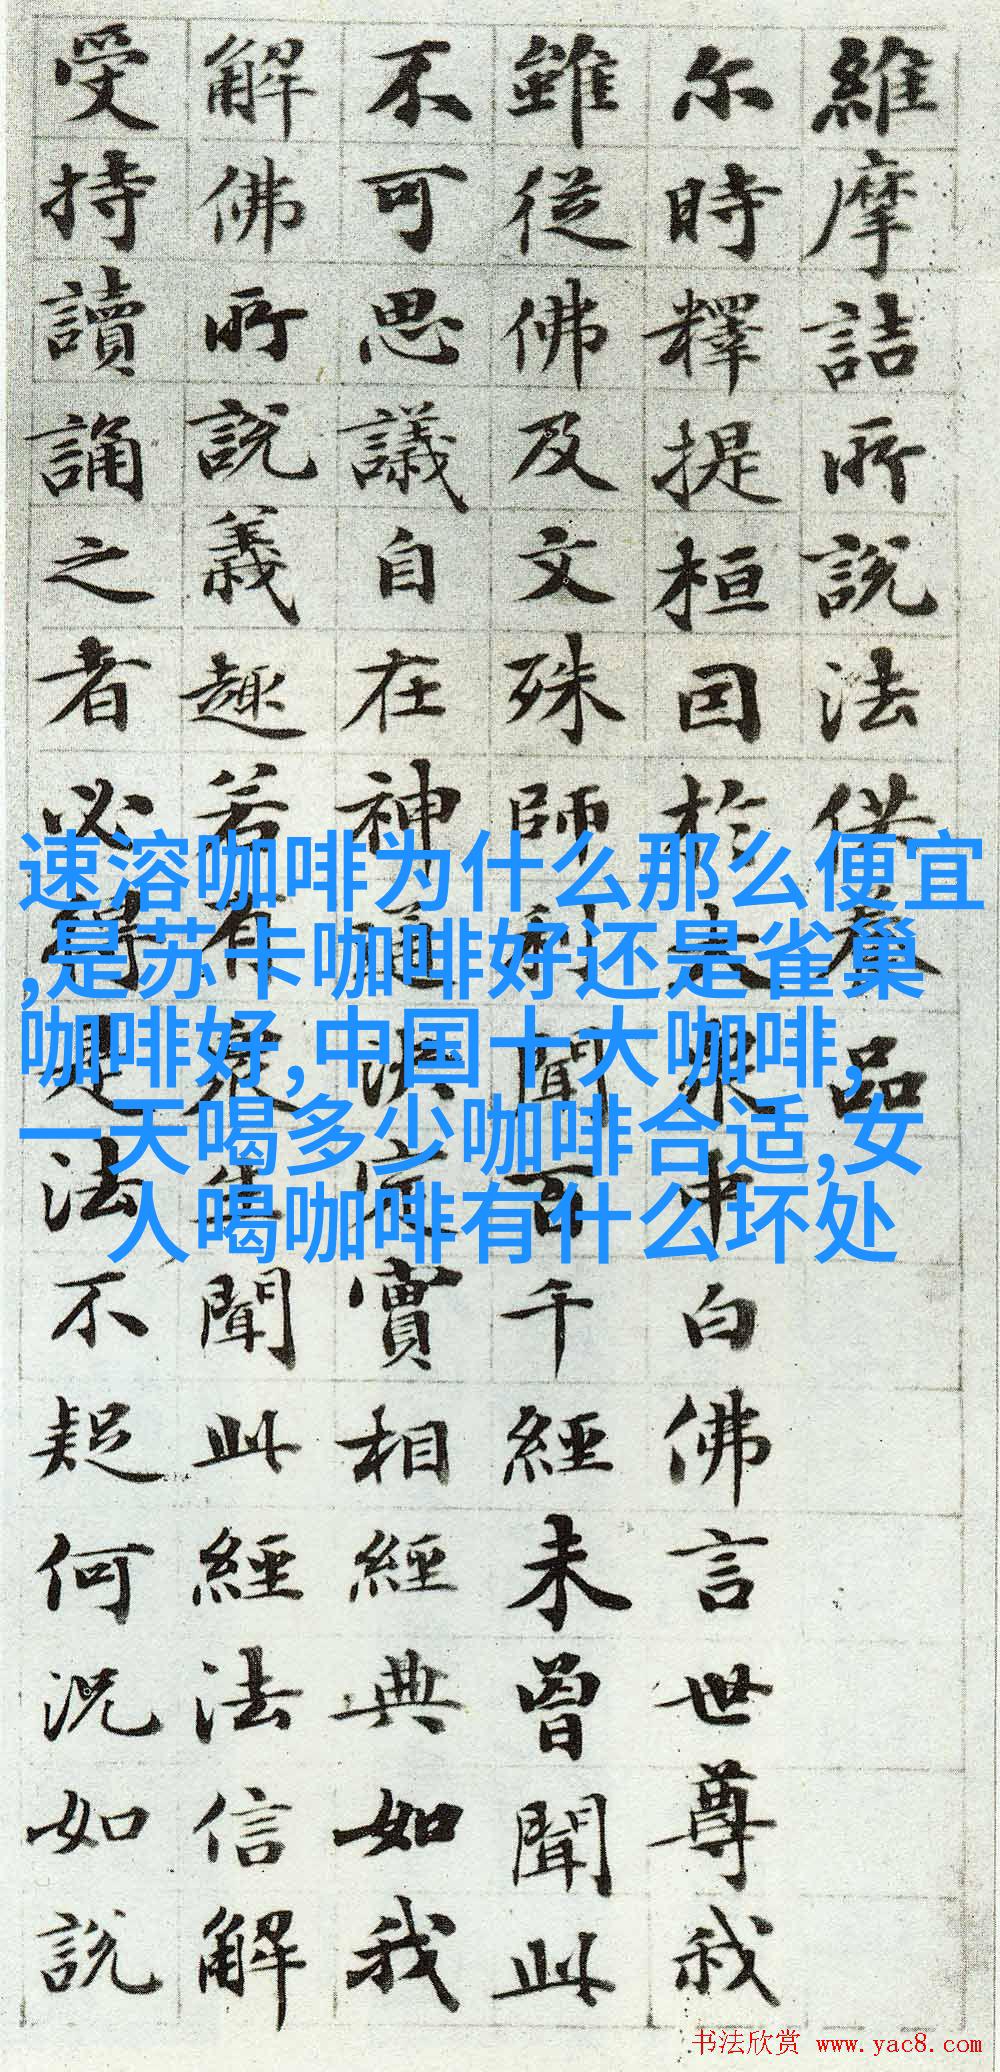 維摩詰所說法供養品
尔時釋提桓因於大眾中白佛言世尊我
雖從佛及文殊師利聞百千經未曾聞此
不可思議自在神通決定實相經典如我
解佛所說義趣若有眾生聞此經法信解
受持讀誦之者必得是法不疑何況如說
速溶咖啡为什么那么便宜
,是苏卡咖啡好还是雀巢
咖啡好,中国十大咖啡,
一天喝多少咖啡合适,女
人喝咖啡有什么坏处
书法欣赏 www.yac8.com